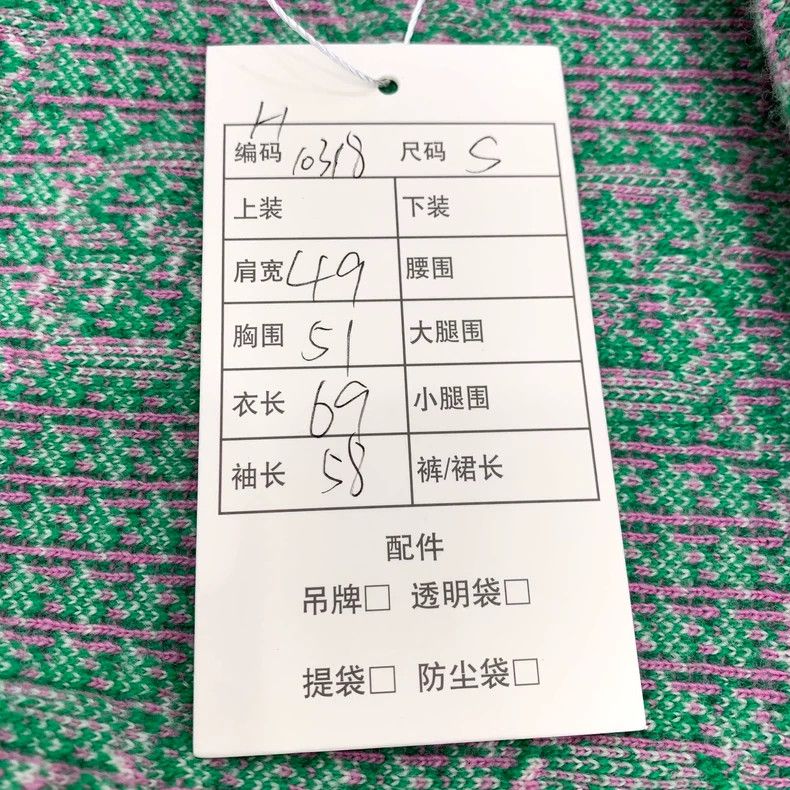 H
编码 10318 尺码 S
上装 下装
肩宽 49 腰围
胸围 51 大腿围
衣长 69 小腿围
袖长 58 裤/裙长
配件
吊牌□ 透明袋□
提袋□ 防尘袋□